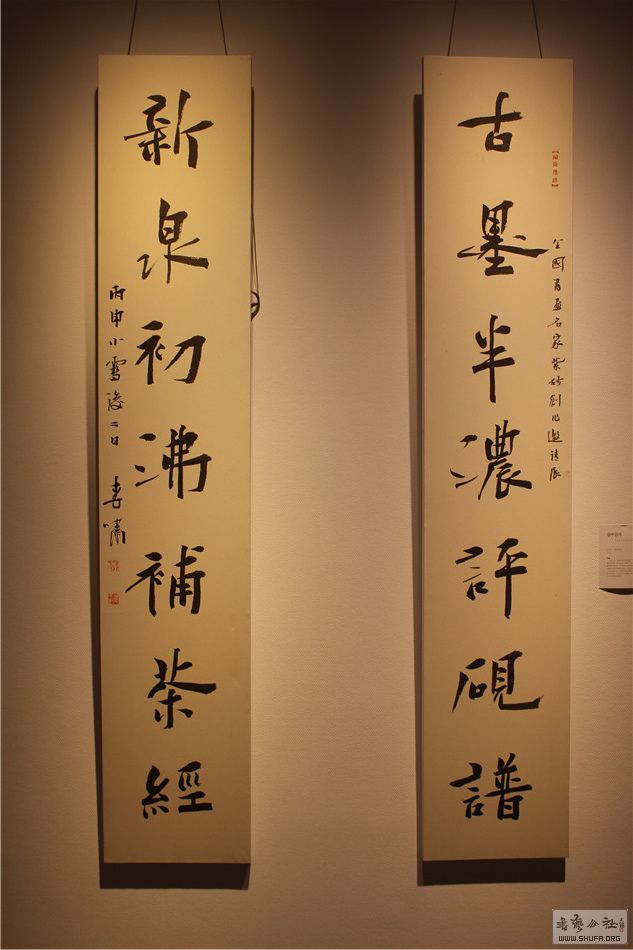 古墨半濃評硯譜
全國首届名家紫砂創作邀請展
新泉初沸補茶經
丙申小雪後二日
WWW.SHUFA.ORG